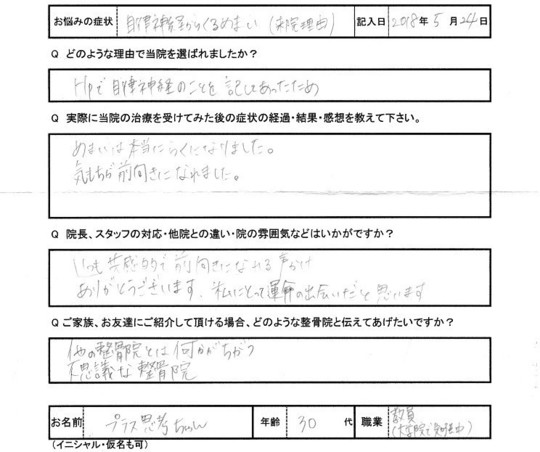 お悩みの症状 自律神経からくるめまい (来院理由) 記入日 2018年 5月 24日
Q どのような理由で当院を選ばれましたか？
Hpで自律神経のことを記してあったため
Q 実際に当院の治療を受けてみた後の症状の経過・結果・感想を教えて下さい。
めまいは本当にらくになりました。
気もちが前向きになれました。
Q 院長、スタッフの対応・他院との違い・院の雰囲気などはいかがですか？
いつも共感的で前向きになれる声かけ
ありがとうございます。私にとって運命の出会いだと思います
Q ご家族、お友達にご紹介して頂ける場合、どのような整骨院と伝えてあげたいですか？
他の整骨院とは何かがちがう
不思議な整骨院
お名前 プラス思考ちゃん 年齢 30 代 職業 教員
(大学院で勉強中)
(イニシャル・仮名も可)